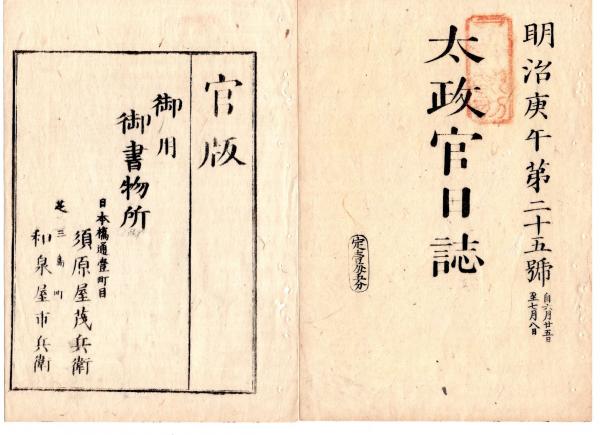 明治庚午第二十五號
自六月廿五日
至七月八日
太政官日誌
官版
御用
御書物所
日本橋通壹町目
須原屋茂兵衛
芝三島町
和泉屋市兵衛